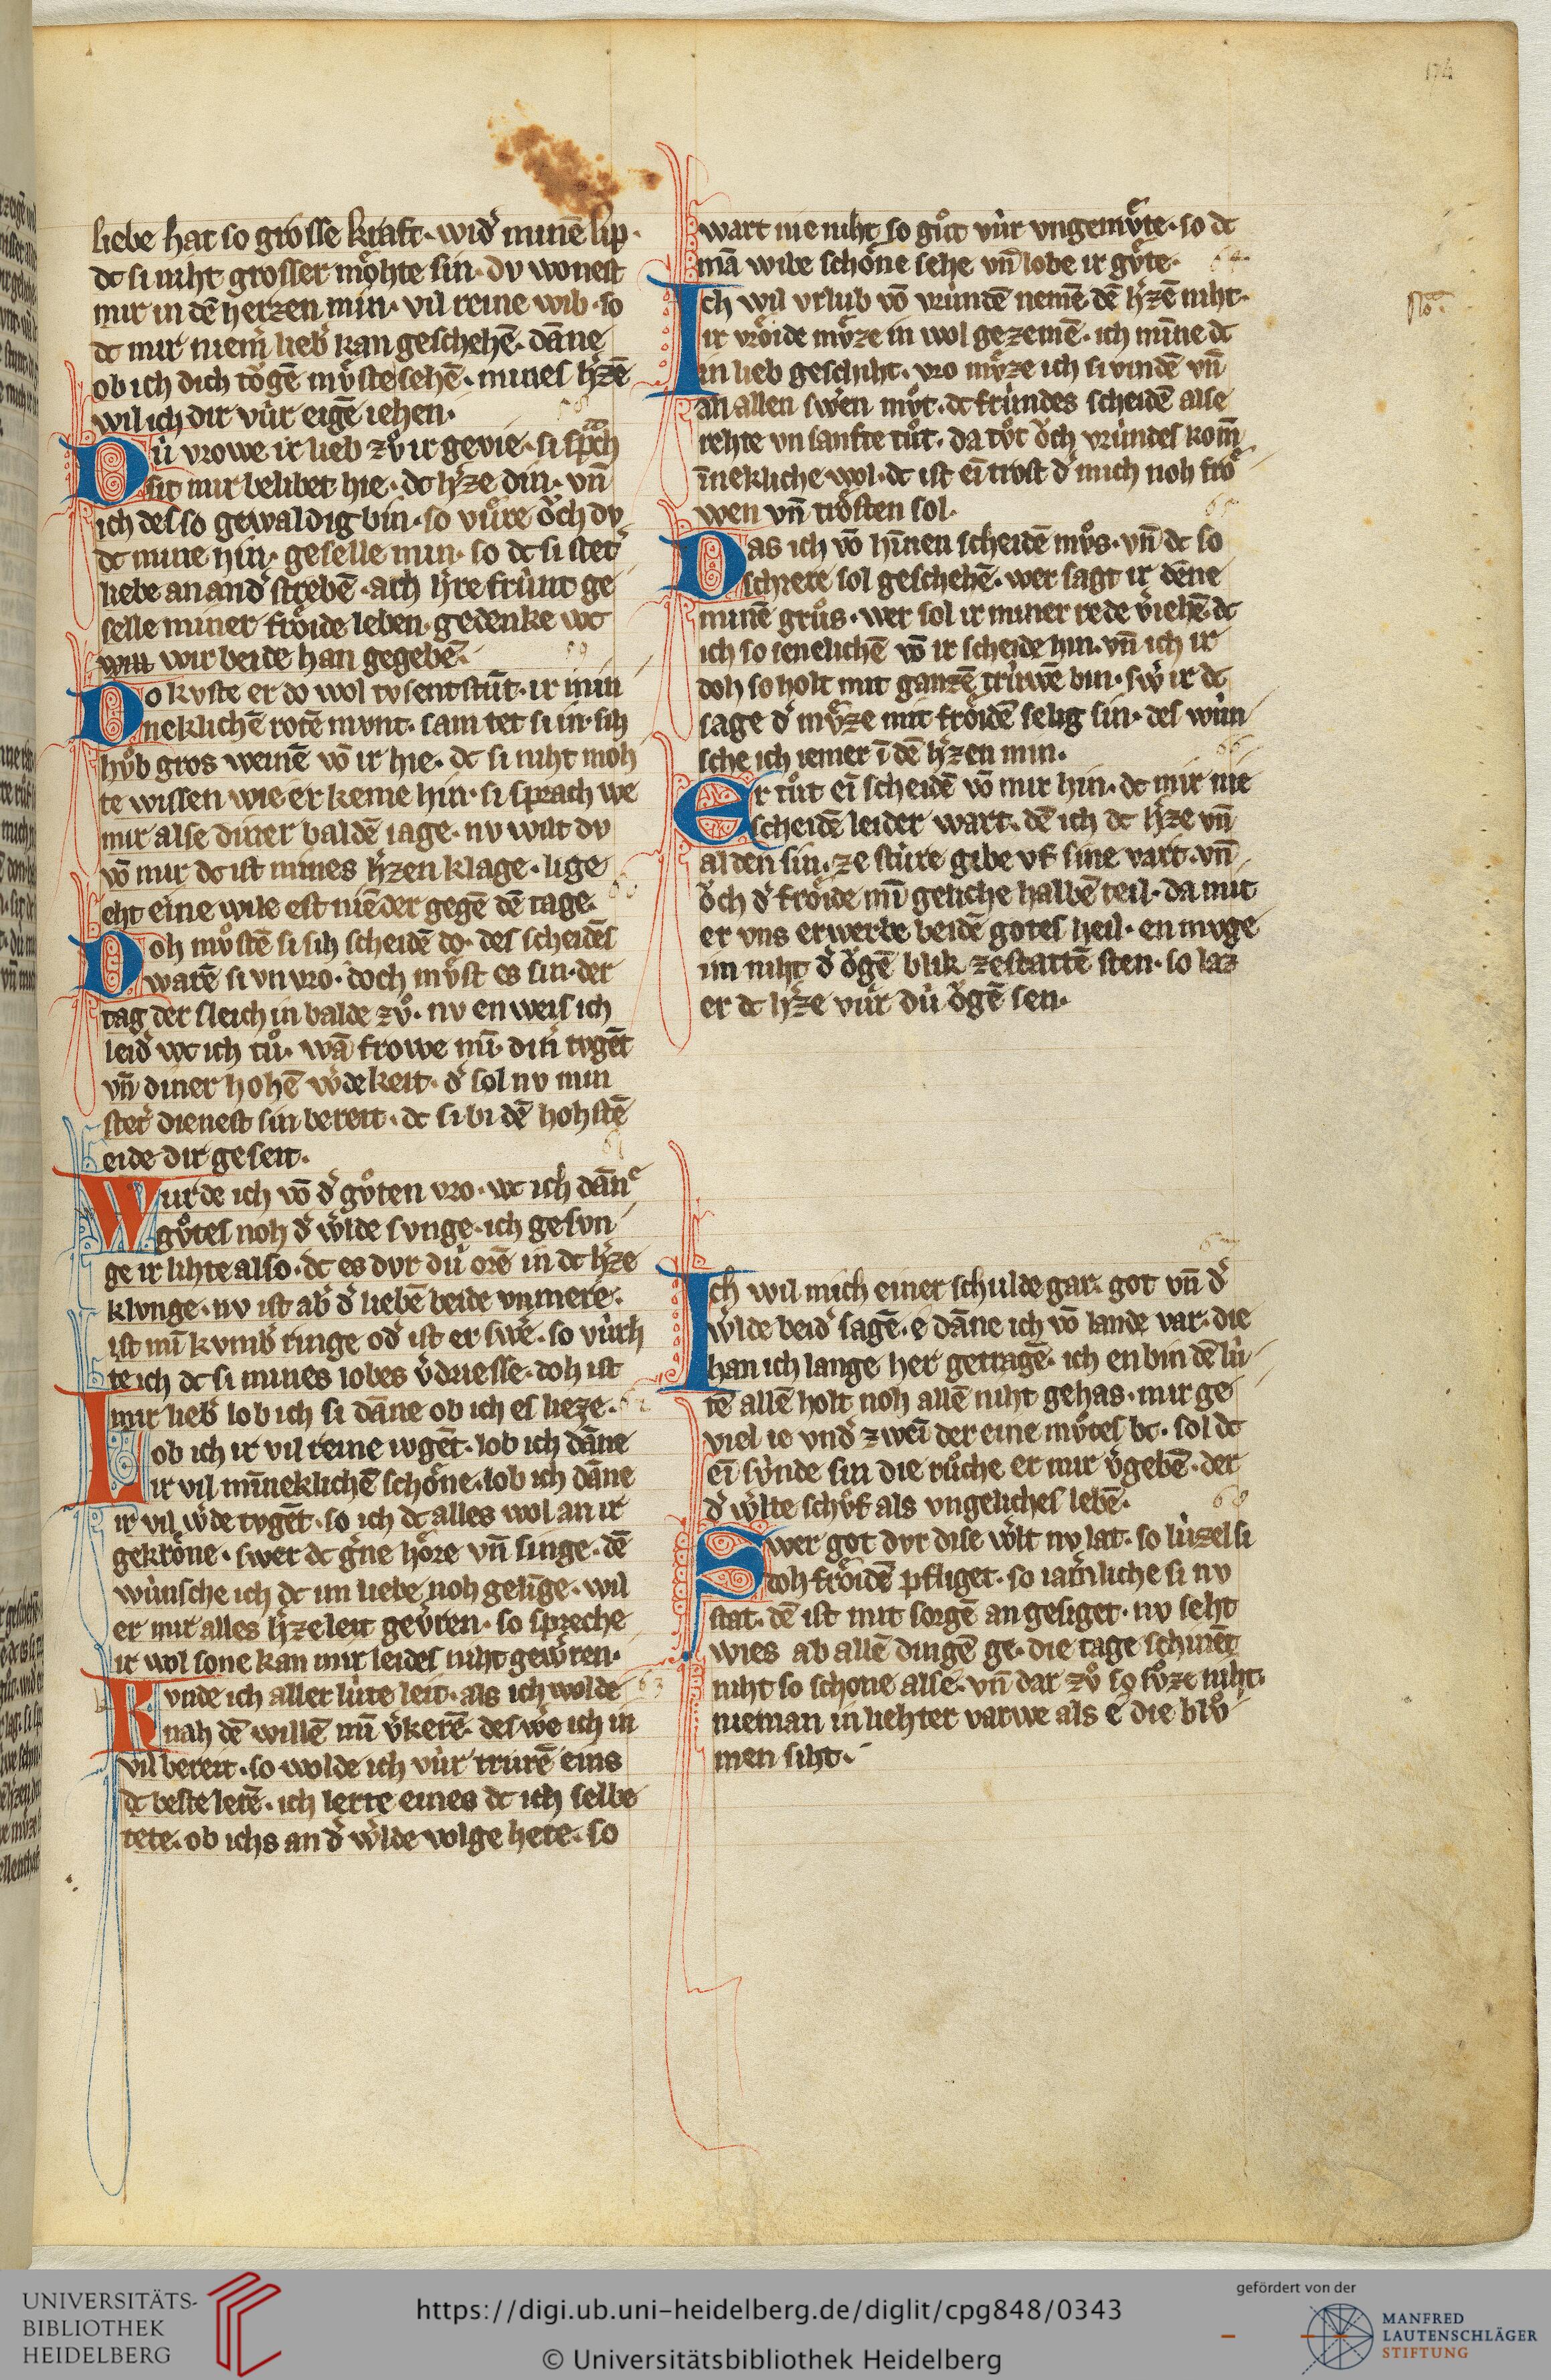 174
liebe hat so grosse kraft. wid͛ minē lip.
dc si niht grosser mo̍hte sin. dv wonest
mir in dē herzen min. vil reine wib. so
dc mir niem͛ lieb͛ kan geschehē. dāne
ob ich dich tǒgē mv̊ste sehē. mines h͛zē
wil ich dir vúr eigē iehen.
Dú vrowe ir lieb zv̊ ir gevie. si sprch
sit mir belibet hie. dc h͛ze din. vn̄
ich des so gewaldig bin. so vu̍re ǒch dv
dc mine hin. geselle min. so dc si stet͛
liebe an and͛ strebē. ach h͛re frúnt ge
selle miner frǒide leben. gedenke wc
will wir beide han gegebē.
Do kvste er do wol tvsent stūt. ir min
neklichē rotē mvnt. sam tet si in. sih
hv̊b gros weinē vō ir hie. dc si niht moh
te wissen wie er keme hin. si sprach we
mir alse diner baldē iage. nv wilt dv
vō mir dc ist mines h͛zen klage. lige
eht eine wile est niēder gegē dē tage.
Doh mv̊stē si sih scheidē do. des scheidēs
warē si vnvro. doch mv̊st es sin. der
tag der sleich in balde zv̊. nv en weis ich
leid͛ wc ich tů. wā frowe mī. din͛ tvgēt
vn̄ diner hohē w͛dekeit. d͛ sol nv min
stet͛ dienest sin bereit. dc si bi dē hohstē
eide dir geseit.
Wurde ich vō d͛ gv̊ten vro. wc ich dāne
gv̊tes noh d͛ w͛lde svnge. ich gesvn
ge ir lihte also. dc es dvr dú orē in dc h͛ze
klvnge. nv ist ab͛ d͛ liebē beide vnmere.
ist mī kvmb͛ ringe od͛ ist er sw͛e. so vúrh
te ich dc si mines lobes v͛driesse. doh ist
mir lieb͛ lob ich si dāne ob ich es lieze.
Lob ich ir vil reine tvgēt. lob ich dāne
ir vil mīneklichē schǒne. lob ich dāne
ir vil w͛de tvgēt. so ich dc alles wol an ir
gekrǒne. swer dc g͛ne hǒre vn̄ singe. dē
wúnsche ich dc im liebe noh gelīge. wil
er mir alles h͛zeleit gev̊ren. so spreche
ir wol sone kan mir leides niht gew͛ren.
Kvnde ich aller lúte leit. als ich wolde
nah dē willē mī v͛kerē. des w͛e ich in
vil bereit. so wolde ich vúr trurē eins
dc beste lerē. ich lerte eines dc ich selbe
tete. ob ichs an d͛ w͛lde volge hete. so
wart nie niht so gůt vúr vngemv̊te. so dc
mā wibe schǒne sehe vn̄ lobe ir gv̊te.
Ich wil vrlub vō vrúndē nemē dē h͛zē niht.
ir vrǒide mv̊ze in wol gezemē. ich mīne dc
in lieb geschiht. vro mv̊ze ich si vindē vn̄
an allen sw͛en mv̊t. dc frúndes scheidē alse
rehte vnsanfte tůt. da tv̊t ǒch vrúndes kom̄
īnekliche wol. dc ist eī trost d͛ mich noh frǒ
wen vn̄ trǒsten sol.
Das ich vō hīnen scheidē mv̊s. vn̄ dc so
schiere sol geschehē. wer sagt ir dēne
minē grůs. wer sol ir miner rede v͛iehē. dc
ich so ienelichē vō ir scheide hin. vn̄ ich ir
doh so holt mit ganzē trúwē bin. sw͛ ir dc
sage d͛ mv̊ze mit frǒidē selig sin. des wún
sche ich iemer ī dē h͛zen min.
Er tůt eī scheidē vō mir hin. dc mir nie
scheidē leider wart. dē ich dc h͛ze vn̄
al den sin. ze stúre gibe vf sine vart. vn̄
ǒch d͛ frǒide mī geliche halbē teil. da mit
er vns erwerbe beidē gotes heil. en mvge
im niht d͛ ǒgē blik ze stattē sten. so laz
er dc h͛ze vúr dú ǒgē sen.
Ich wil mich einer schulde gar. got vn̄ d͛
w͛lde beid͛ sagē. e dāne ich vō lande var. die
han ich lange her getragē. ich en bin dē lú
tē allē holt noh allē niht gehas. mir ge
viel ie vnd͛ zweī der eine mv̊tes bc. sol dc
eī sv̊nde sin die růche er mir v͛gebē. der
d͛ w͛lte schv̊f als vngeliches lebē.
Swer got dvr dise w͛lt nv lat. so lúzel si
doh frǒidē pfliget. so iam͛liche si nv
stat. dē ist mit sorgē an gesiget. nv seht
wies ab allē dingē ge. die tage schinēt
niht so schone alse. vn̄ dar zv̊ so sv̊ze niht.
nieman in liehter varwe als e die blv̊
men siht.
UNIVERSITÄTS-
BIBLIOTHEK
HEIDELBERG
https://digi.ub.uni-heidelberg.de/diglit/cpg848/0343
© Universitätsbibliothek Heidelberg
gefördert von der
MANFRED
LAUTENSCHLÄGER
STIFTUNG